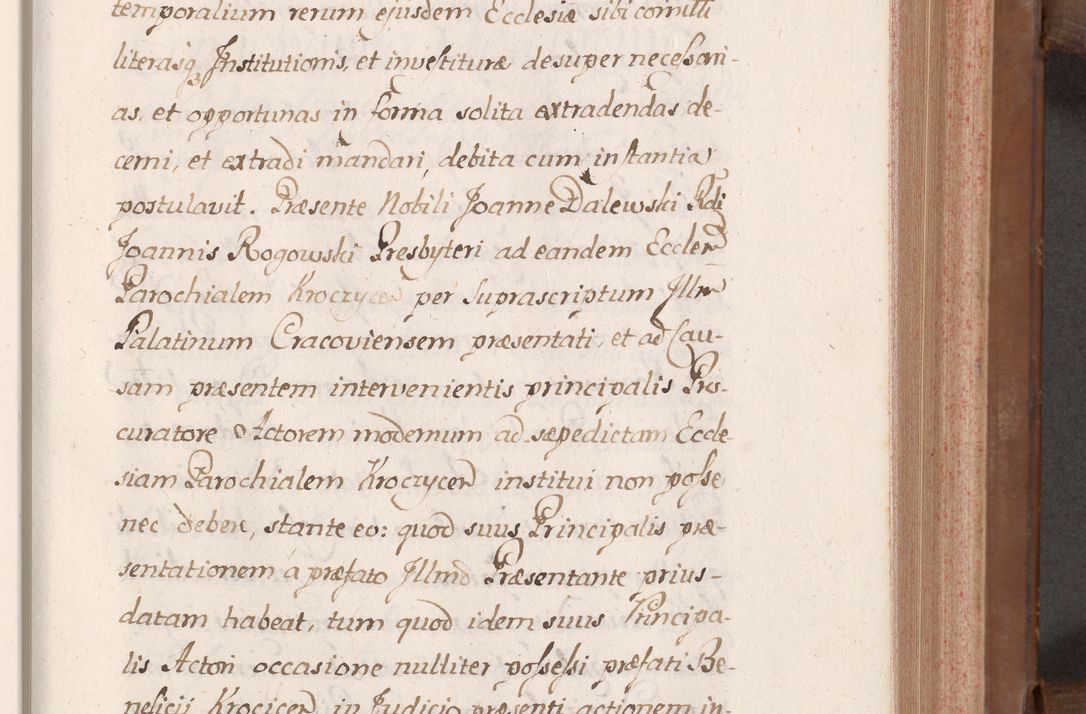 temporalium rerum ejusdem Ecclesiæ sibi comitti
literasq3 Institutionis, et investituræ desuper necessari-
as, et opportunas in forma solita extradendas de-
cerni, et extradi mandari, debita cum instantia
postulavit. Præsente Nobili Joanne Dalewski Rdi
Joannis Rogowski Presbyteri ad eandem Ecclem
Parochialem Kroczycen per suprascriptum Illm
Palatinum Cracoviensem præsentati, et ad Cau-
sam præsentem intervenientis principalis Pro-
curatore Actorem modernum ad sæpedictam Eccle-
siam Parochialem Kroczycen institui non posse
nec debere, stante eo: quod suus Principalis præ-
sentationem á præfato Illmo Præsentante prius-
datam habeat, tum quod idem suus Principa-
lis Actori occasione nulliter possessi præfati Be-
neficii Krocicen in Judicio præsenti actionem in-